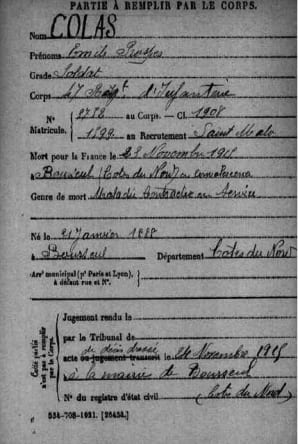 PARTIE À REMPLIR PAR LE CORPS.
Nom COLAS
Prénoms Emile
Grade Soldat
Corps 47 Régt. d'Infanterie
N° 2788 au Corps. — Cl. 1908
Matricule. 1899 au Recrutement Saint Malo
Mort pour la France le 23 Novembre 1915
à Bourseul (Côtes du Nord) en convalescence
Genre de mort Maladie contractée en service
Né le 21 Janvier 1888
à Bourseul Département Côtes du Nord
Arr¹ municipal (pʳ Paris et Lyon),
à défaut rue et N°.
Cette partie
n'est pas à remplir
par le Corps.
Jugement rendu le
par le Tribunal de
de décès dressé
acte ou jugement transcrit le 24 Novembre 1915
à la mairie de Bourseul
(Côtes du Nord)
N° du registre d'état civil
534-708-1921. [26434.]